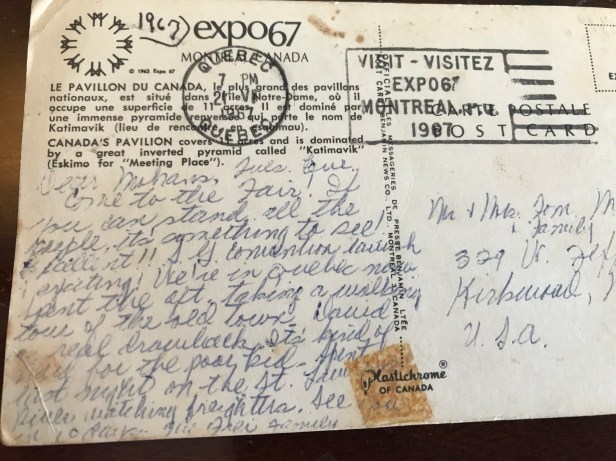 1967
expo67
MONTRÉAL CANADA
© 1963 Expo 67
LE PAVILLON DU CANADA, le plus grand des pavillons
nationaux, est situé dans l'île Notre-Dame, où il
occupe une superficie de 11 acres. Il est dominé par
une immense pyramide renversée qui porte le nom de
Katimavik (lieu de rencontre en esquimau).
CANADA'S PAVILION covers acres and is dominated
by a great inverted pyramid called "Katimavik"
(Eskimo for "Meeting Place").
QUEBEC
7 PM
QUEBEC
VISIT - VISITEZ
EXPO67
MONTREAL, P.Q.
1967
CARTE POSTALE
POST CARD
LES MESSAGERIES DE PRESSE BENJAMIN LTÉE
BENJAMIN NEWS CO., LTD., MONTREAL, CANADA
Dear Tues. Eve.
Come to the Fair! If
you can stand all the
people, it's something to see!
I fell it!! convention
exciting! We're in Quebec now
spent the aft. taking a walking
tour of the old town. David
real drawback. It's kind of
for the poor kid. Spent
last night on the St.
River watching freighters. See
in family
Mr & Mrs. Tom
& Family
329 W.
Kirkwood,
U.S.A.
Plastichrome ®
OF CANADA